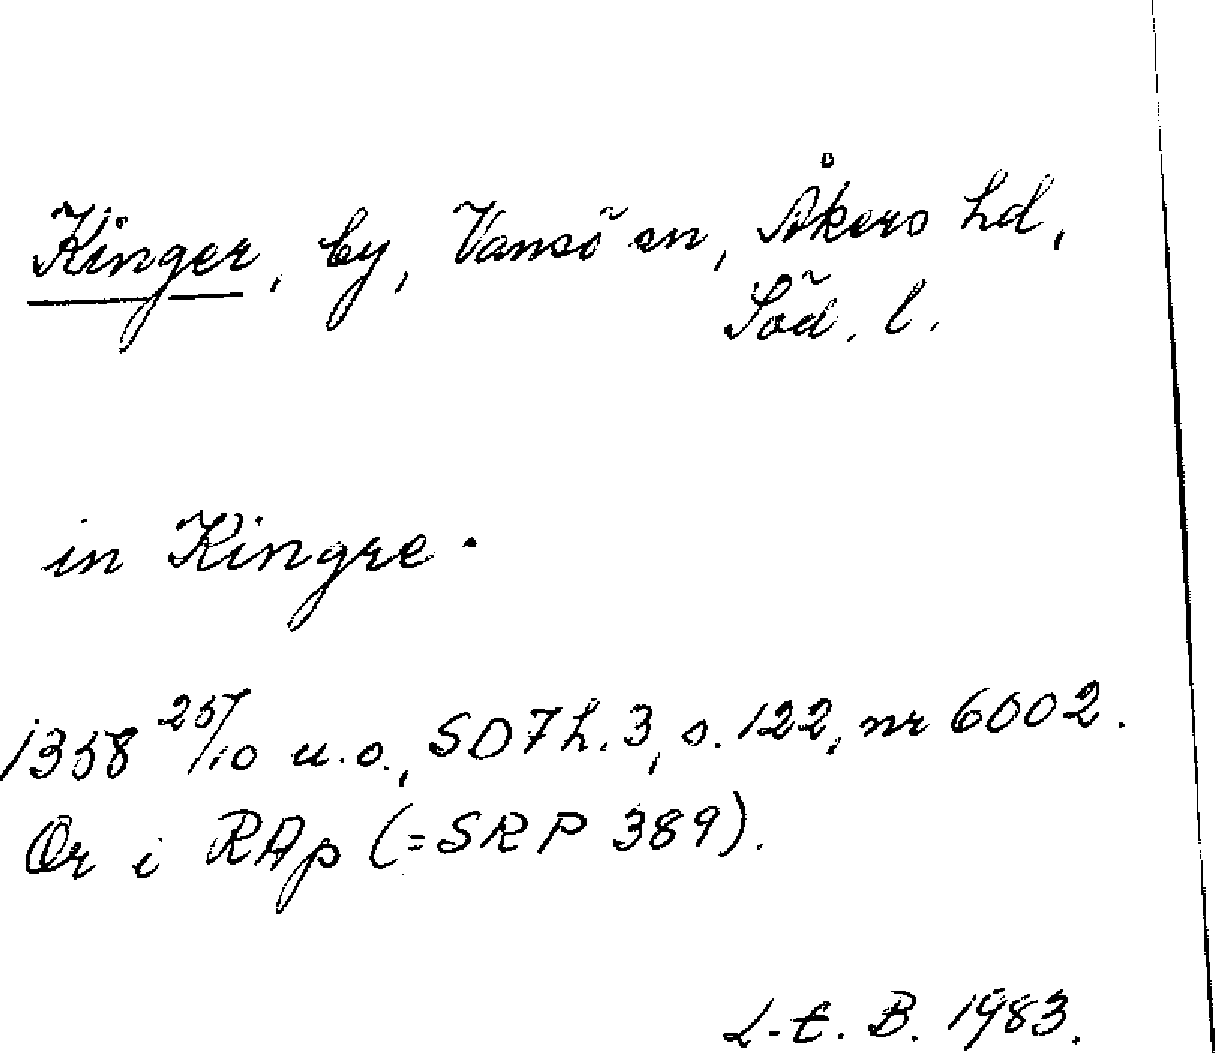 Kinger, by, Vansö sn, Åkers hd,
Söd. l.
in Kingre.
1358 25/10 u.o., SD 7 h. 3, s. 122, nr 6002.
Or i RAp (=SRP 389).
L-E. B. 1983.